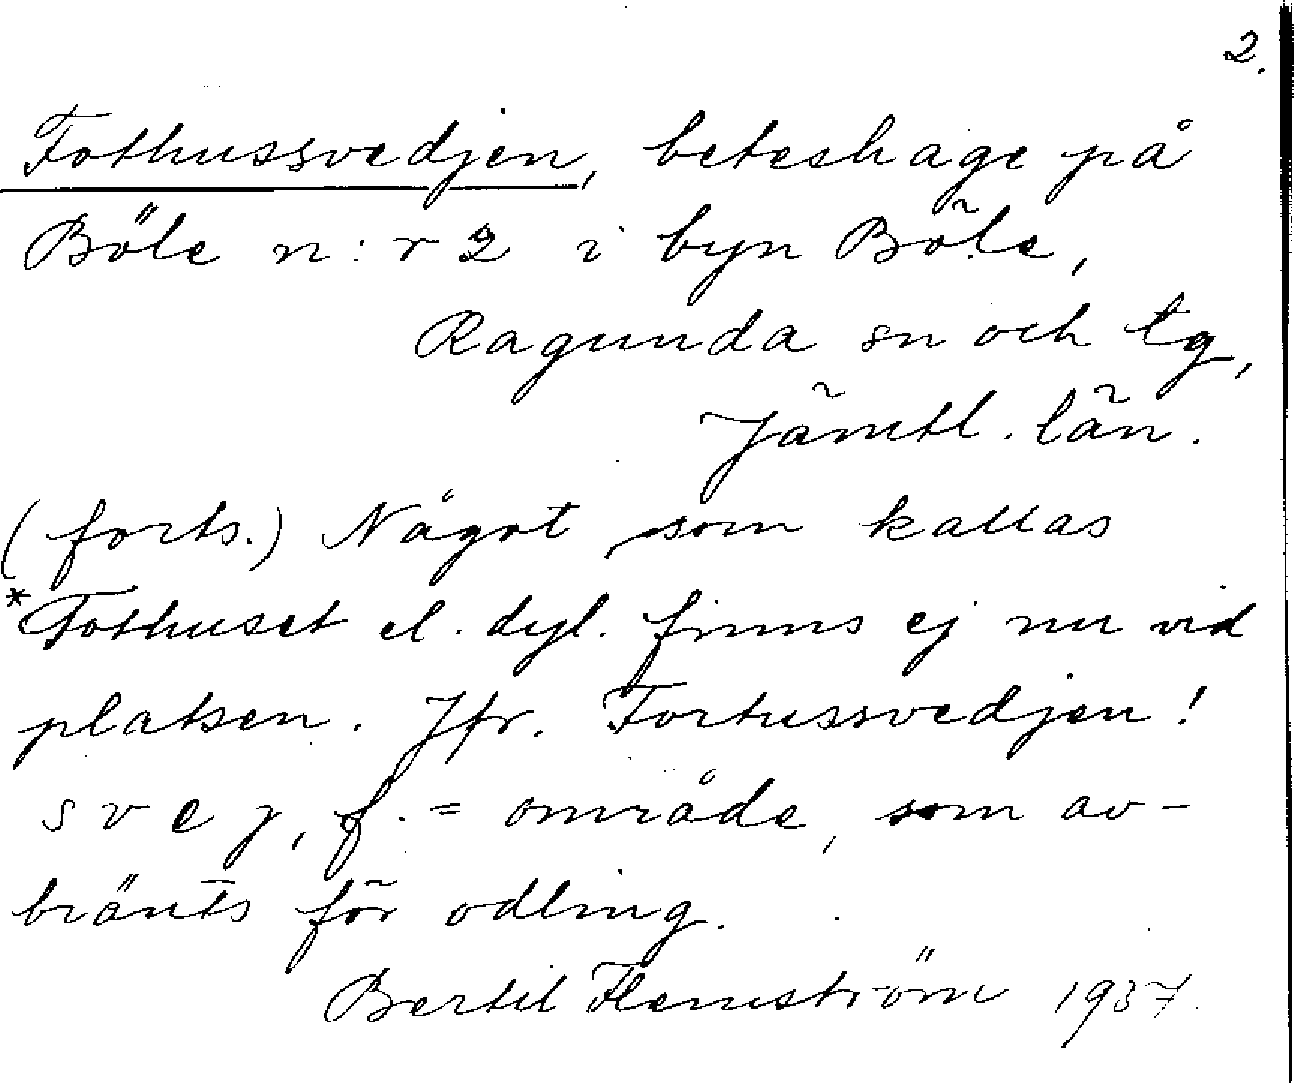 2.
Fothussvedjen, beteshage på
Böle n:r 2 i byn Böle,
Ragunda sn och tg,
Jämtl. län.
(forts.) Något, som kallas
*Fothuset el. dyl. finns ej nu vid
platsen. Jfr. Fortussvedjen!
svej, f. = område, som av-
bränts för odling.
Bertil Flemström 1937.